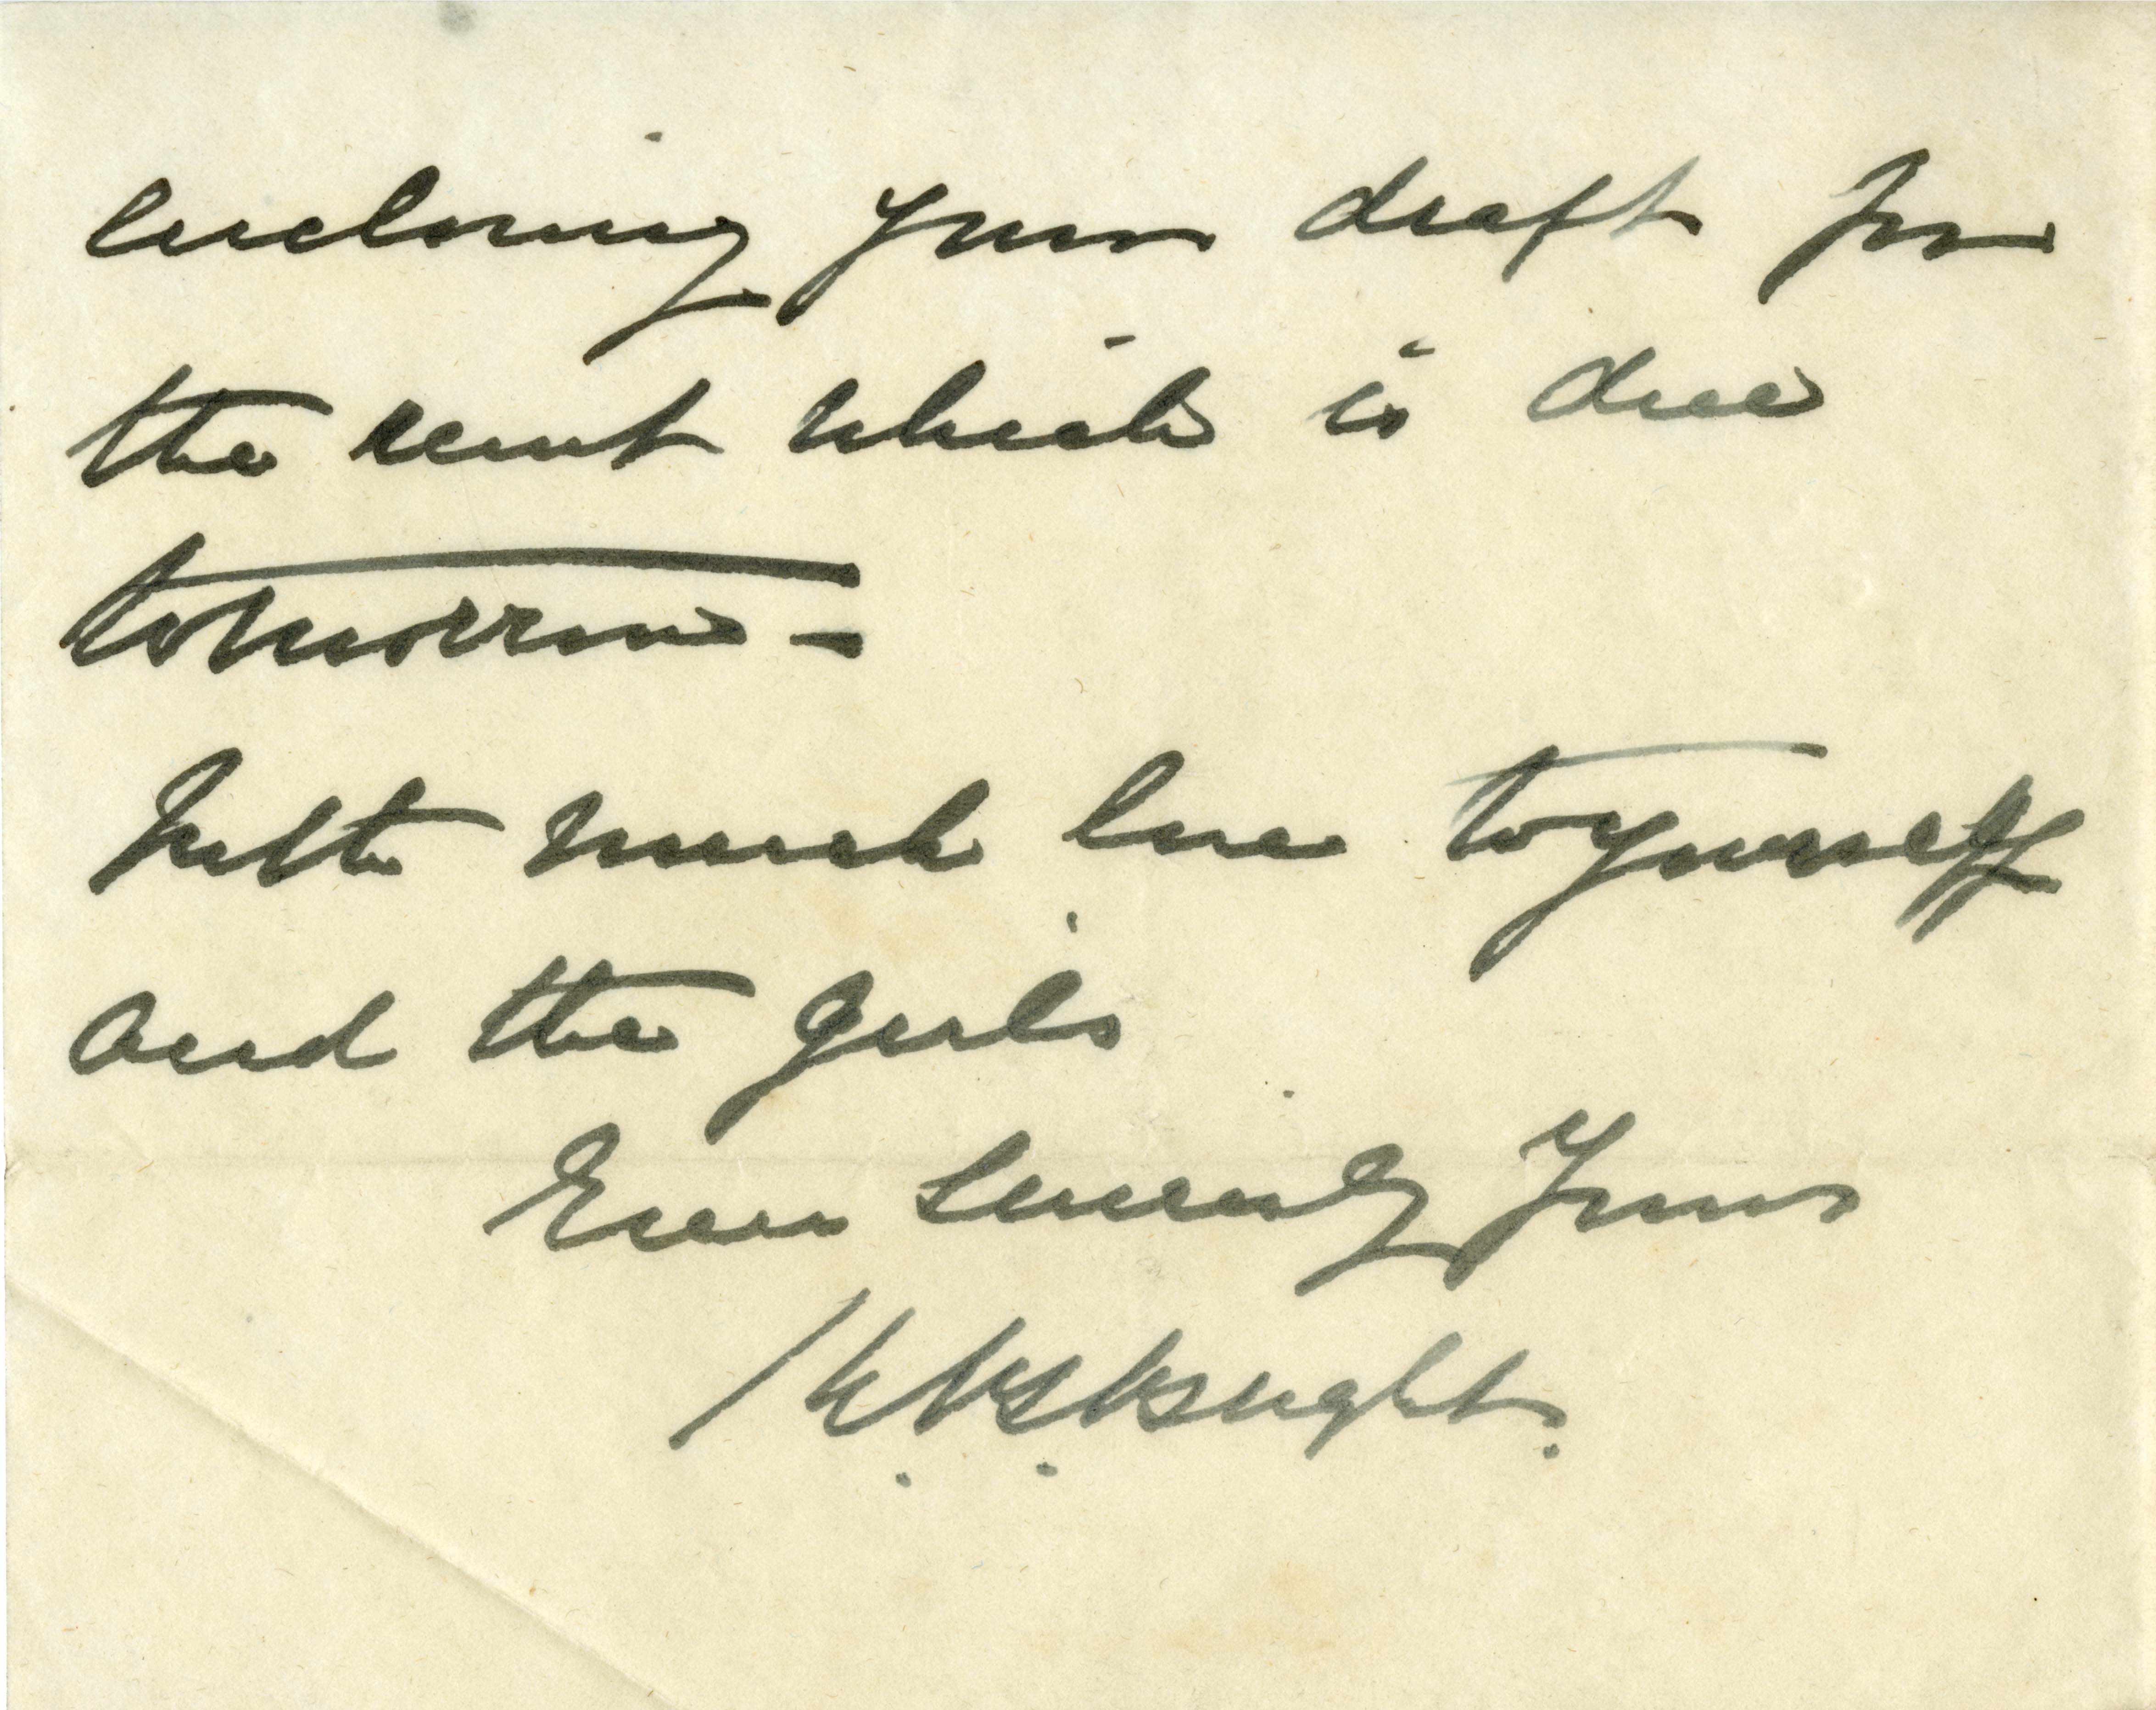 enclosing your draft for
the rent which is due
tomorrow -
With much love to yourself
and the girls
Ever Sincerely Yours